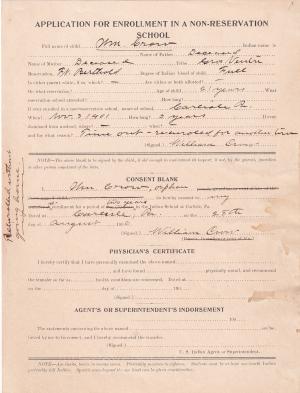 APPLICATION FOR ENROLLMENT IN A NON-RESERVATION
SCHOOL
Full name of child Wm Crow Indian name is
Name of Father Deceased
Name of Mother Deceased Tribe Gros Ventre
Reservation, Ft. Berthold Degree of Indian blood of child: Full
Is either parent white, if so, which? Are either or both allotted?
On what reservation? Age of child: 21 years What
reservation school attended? How long?
If ever enrolled in a non-reservation school, name of school, Carlisle Pa
When? Nov. 3 1901 How long? 5 years If ever
dismissed from school, where? when?
and for what reason? Time out - reenroled for another term
(Signed) William Crow
NOTE—The above blank to be signed by the child, if old enough to understand its import; if not, by the parent, guardian
or other person committing of the case.
Reenrolled without
going home
CONSENT BLANK
I Wm Crow, orphan
hereby consent to my
enrollment for a period of two years in the Indian School at Carlisle, Pa.
Dated at Carlisle, Pa. on the 25th
day of August 190
(Signed) William Crow
PHYSICIAN'S CERTIFICATE
I hereby certify that I have personally examined the above named
and have found physically sound, and recommend
the transfer as far as health conditions are concerned. Dated on the
day of 190
(Signed)
AGENT'S OR SUPERINTENDENT'S INDORSEMENT
190
The statements concerning the above named are be-
lieved by me to be correct, and I hereby recommend the transfer.
U. S. Indian Agent or Superintendent.